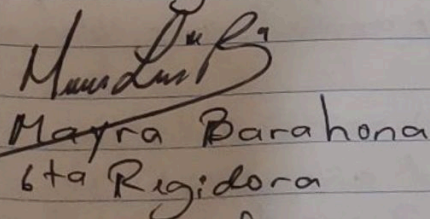 Mayra Barahona
6ta Regidora